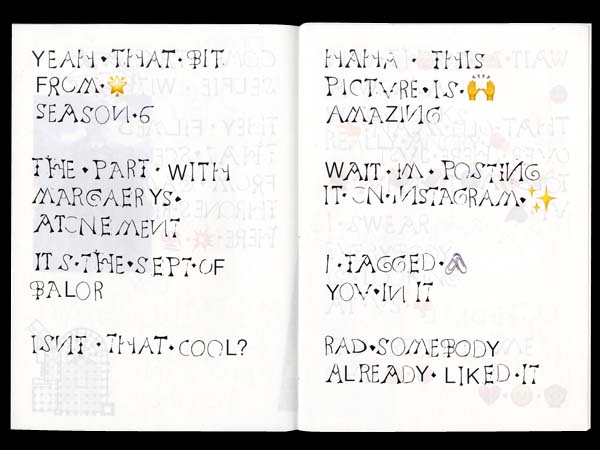 YEAH·THAT·BIT
FROM·🌟
SEASON·6
THE·PART·WITH
MARGAERYS·
ATONEMENT
ITS·THE·SEPT·OF
BALOR
ISNT·THAT·COOL?
HAHA·THIS
PICTURE·IS·🙌
AMAZING
WAIT·IM·POSTING
IT·ON·INSTAGRAM·✨
I·TAGGED·🖇
YOU·IN IT
RAD·SOMEBODY
ALREADY·LIKED·IT